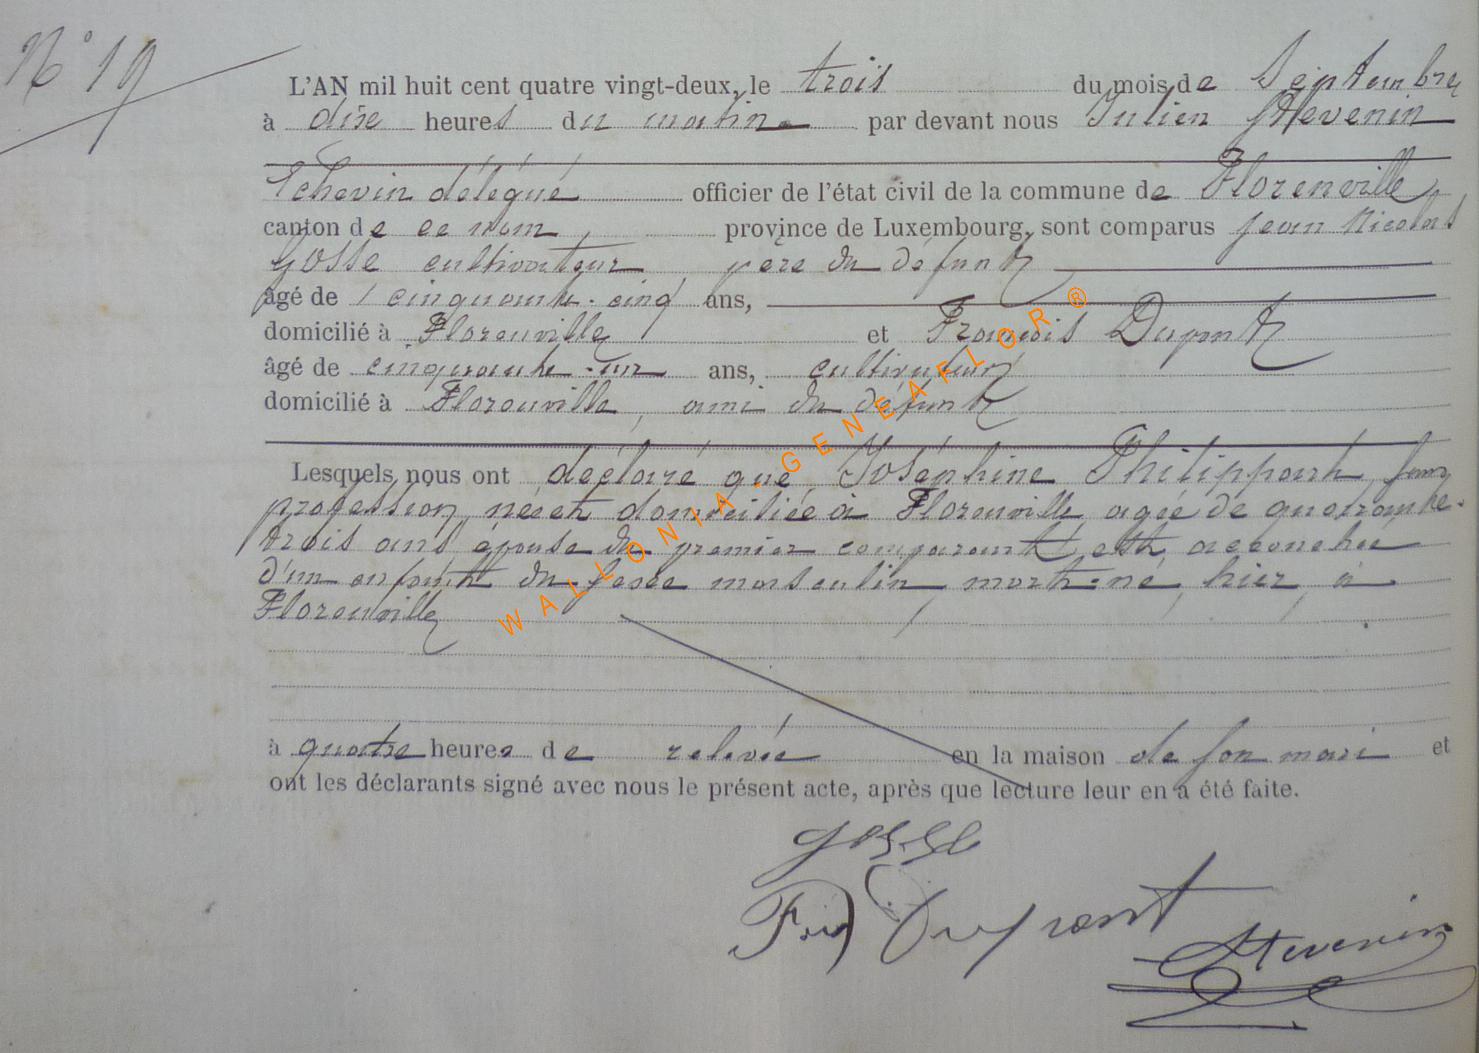 N° 19
L'AN mil huit cent quatre vingt-deux, le trois du mois de Septembre
à dix heures du matin par devant nous Julien Stevenin
Echevin délégué officier de l'état civil de la commune de Florenville
canton de ce nom, province de Luxembourg, sont comparus Jean Nicolas
Gosse cultivateur, père du défunt
âgé de cinquante-cinq ans,
domicilié à Florenville et François Dupont
âgé de cinquante-un ans, cultivateur
domicilié à Florenville, ami du défunt
Lesquels nous ont déclaré que Joséphine Philippart, sans
profession, née et domiciliée à Florenville, agée de quarante-
trois ans épouse du premier comparant, est accouchée
d'un enfant du sexe masculin, mort-né, hier, à
Florenville
à quatre heures de relevée en la maison de son mari et
ont les déclarants signé avec nous le présent acte, après que lecture leur en a été faite.
Gosse
Dupont
Stevenin
WALLONIA-GENEAFLOR®